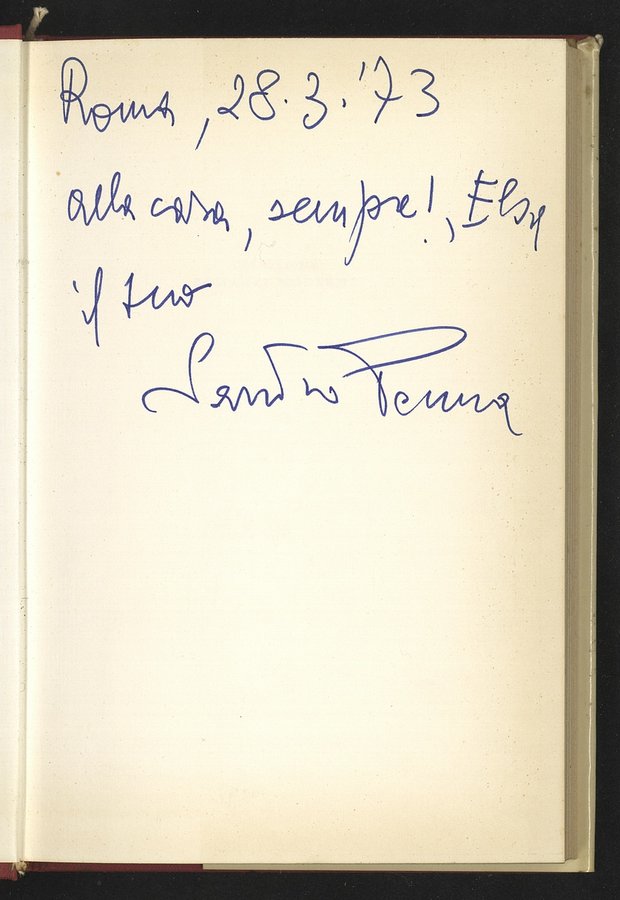 Roma, 28.3.'73
alla cara, sempre!, Elsa
il tuo
Sandro Penna